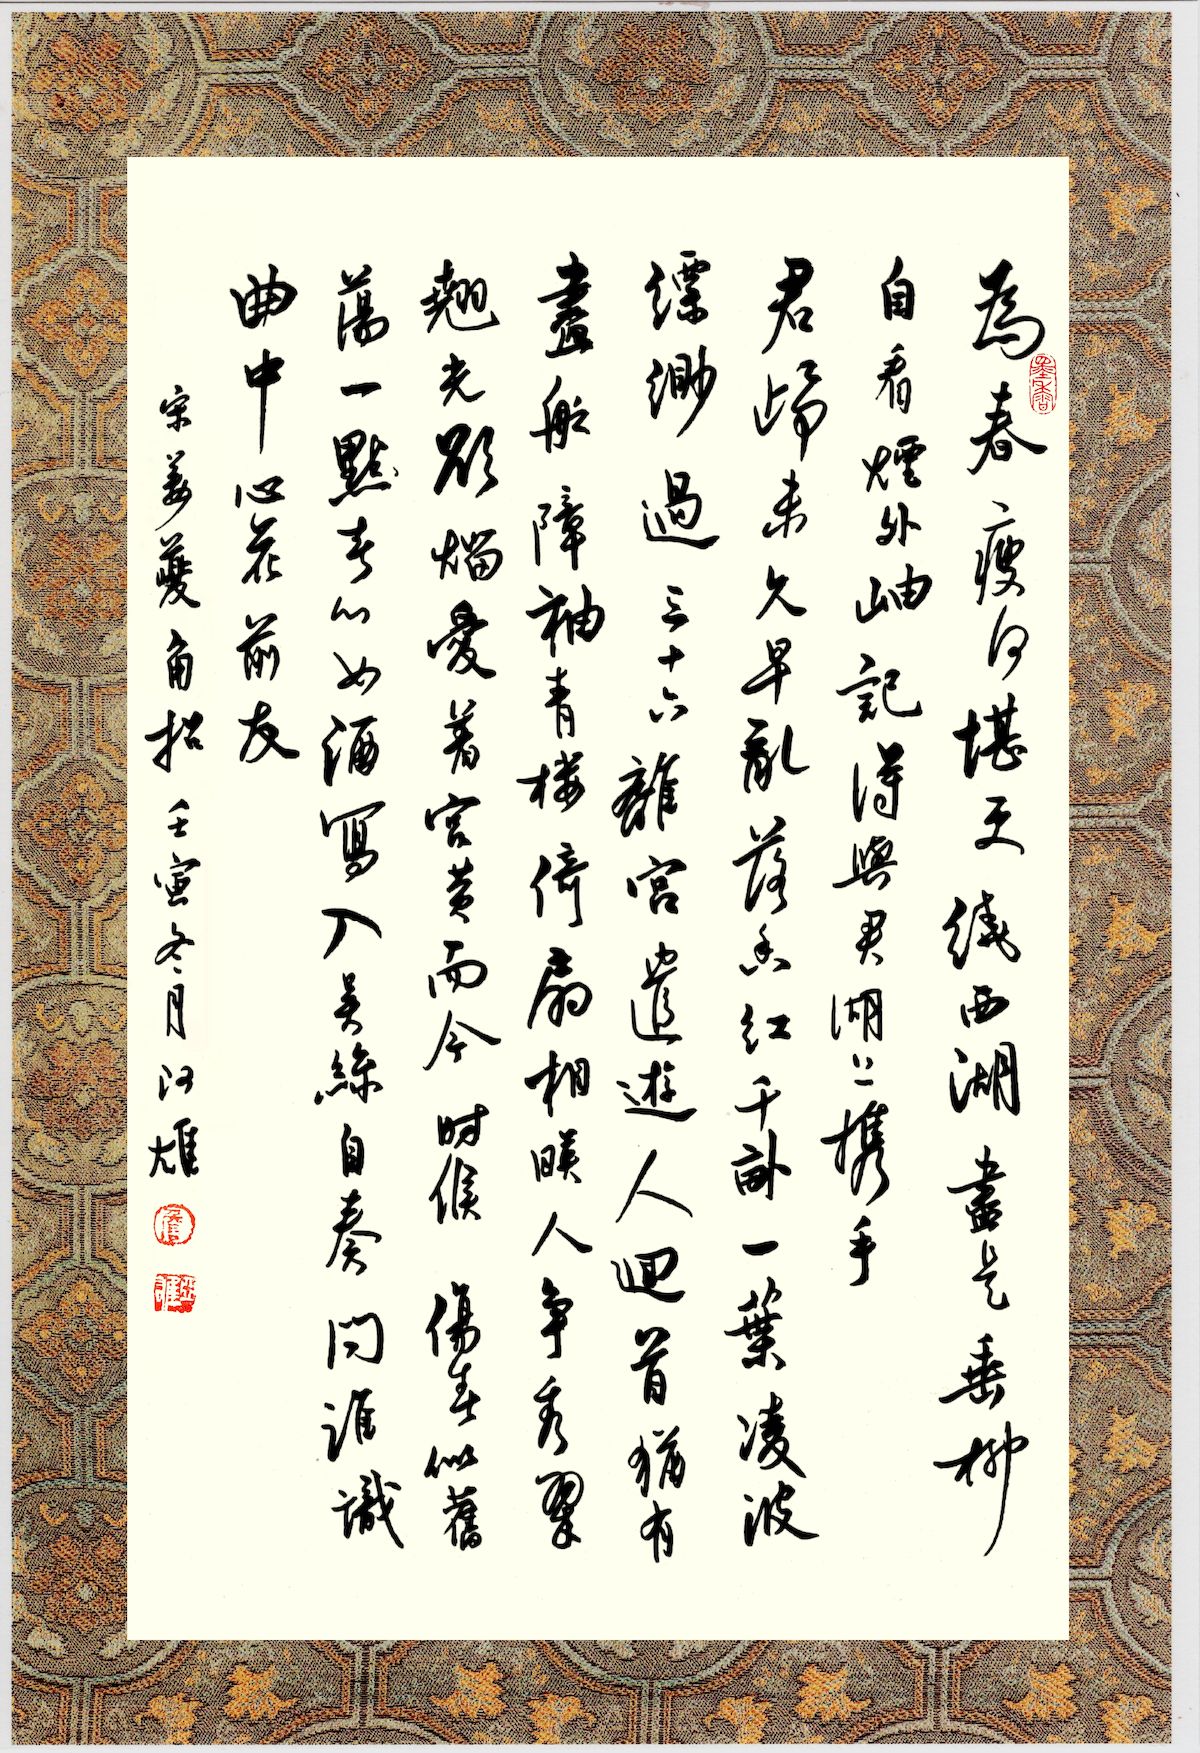 為春瘦何堪更繞西湖盡是垂柳
自看煙外岫記得與君湖上携手
君歸未久早亂落香红千畝一葉凌波
縹緲過三十六離宮遣遊人迴首猶有
畫船障袖青楼倚扇相暎人争秀翠
翹光欲熘愛著宮黄而今时候傷春似舊
蕩一點春心如酒寫入吴絲自奏問誰識
曲中心花前友
宋姜夔角招壬寅冬月雄
墨香